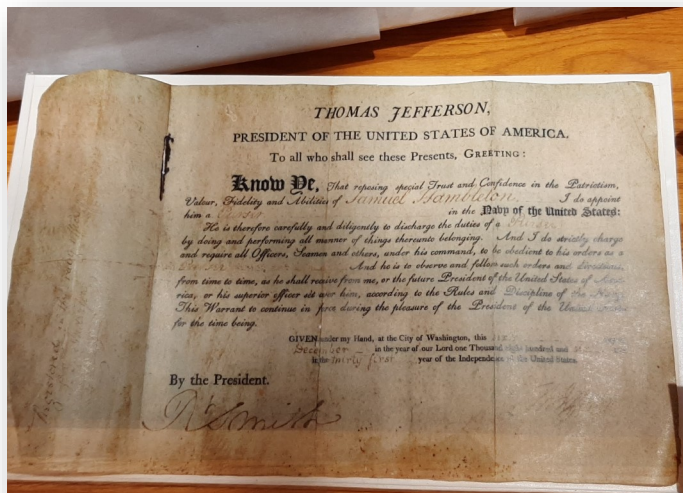 THOMAS JEFFERSON,
PRESIDENT OF THE UNITED STATES OF AMERICA.
To all who shall see these Presents, GREETING:
Know Ye, That reposing special Trust and Confidence in the Patriotism,
Valour, Fidelity and Abilities of Samuel Hambleton. I do appoint
him a Purser in the Navy of the United States:
He is therefore carefully and diligently to discharge the duties of a Purser
by doing and performing all manner of things thereunto belonging. And I do strictly charge
and require all Officers, Seamen and others, under his command, to be obedient to his orders as a
Purser And he is to observe and follow such orders and directions,
from time to time, as he shall receive from me, or the future President of the United States of America,
or his superior officer set over him, according to the Rules and Discipline of the Navy.
This Warrant to continue in force during the pleasure of the President of the United States
for the time being.
GIVEN under my Hand, at the City of Washington, this
December in the year of our Lord one Thousand eight hundred and
in the thirty first year of the Independence of the United States.
By the President.
Rt Smith